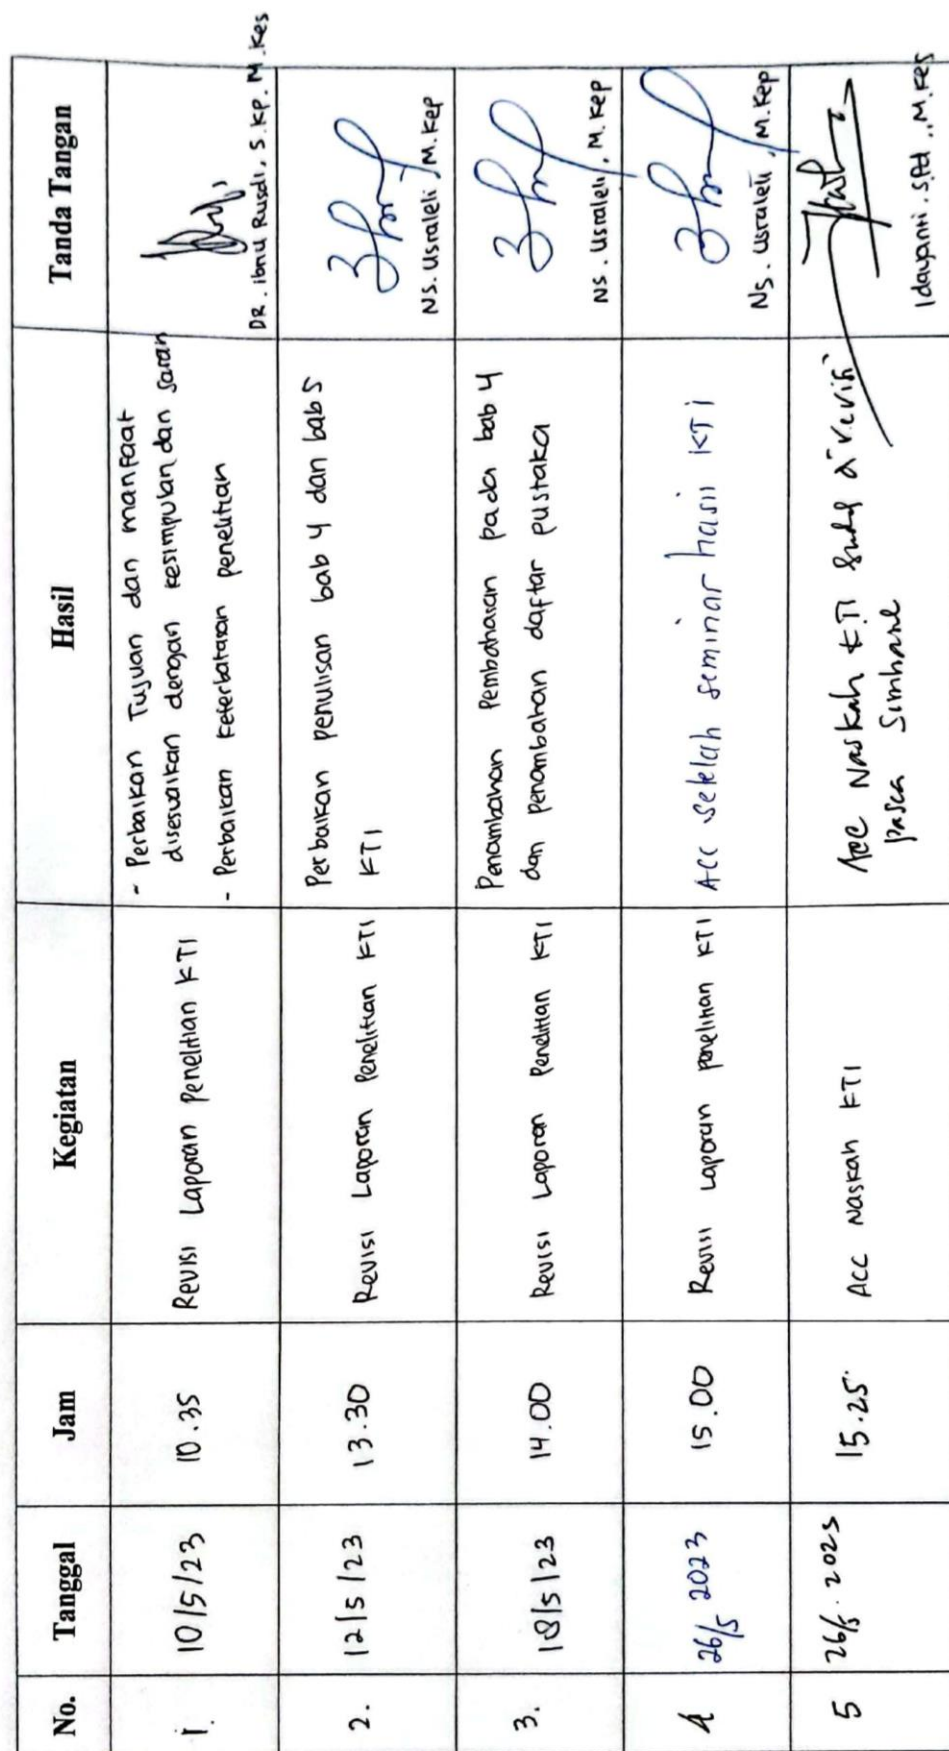 No. Tanggal Jam Kegiatan Hasil Tanda Tangan
1. 10/5/23 10.35 Revisi Laporan Penelitian KTI
- Perbaikan Tujuan dan manfaat
disesuaikan dengan kesimpulan dan saran
- Perbaikan keterbatasan penelitian
DR. Ibnu Rusdi, S.Kp. M.Kes
2. 12/5/23 13.30 Revisi Laporan Penelitian KTI
Perbaikan penulisan bab 4 dan bab 5
KTI
Ns. Usraleli, M.Kep
3. 18/5/23 14.00 Revisi Laporan Penelitian KTI
Penambahan Pembahasan pada bab 4
dan Penambahan daftar pustaka
Ns. Usraleli, M.Kep
4 26/5 2023 15.00 Revisi Laporan penelitian KTI
ACC setelah seminar hasil KTI
Ns. Usraleli, M.Kep
5 26/5. 2023 15.25 ACC Naskah KTI
Acc Naskah KTI direvisi
pasca
Idayanti. S.Pd., M.Kes